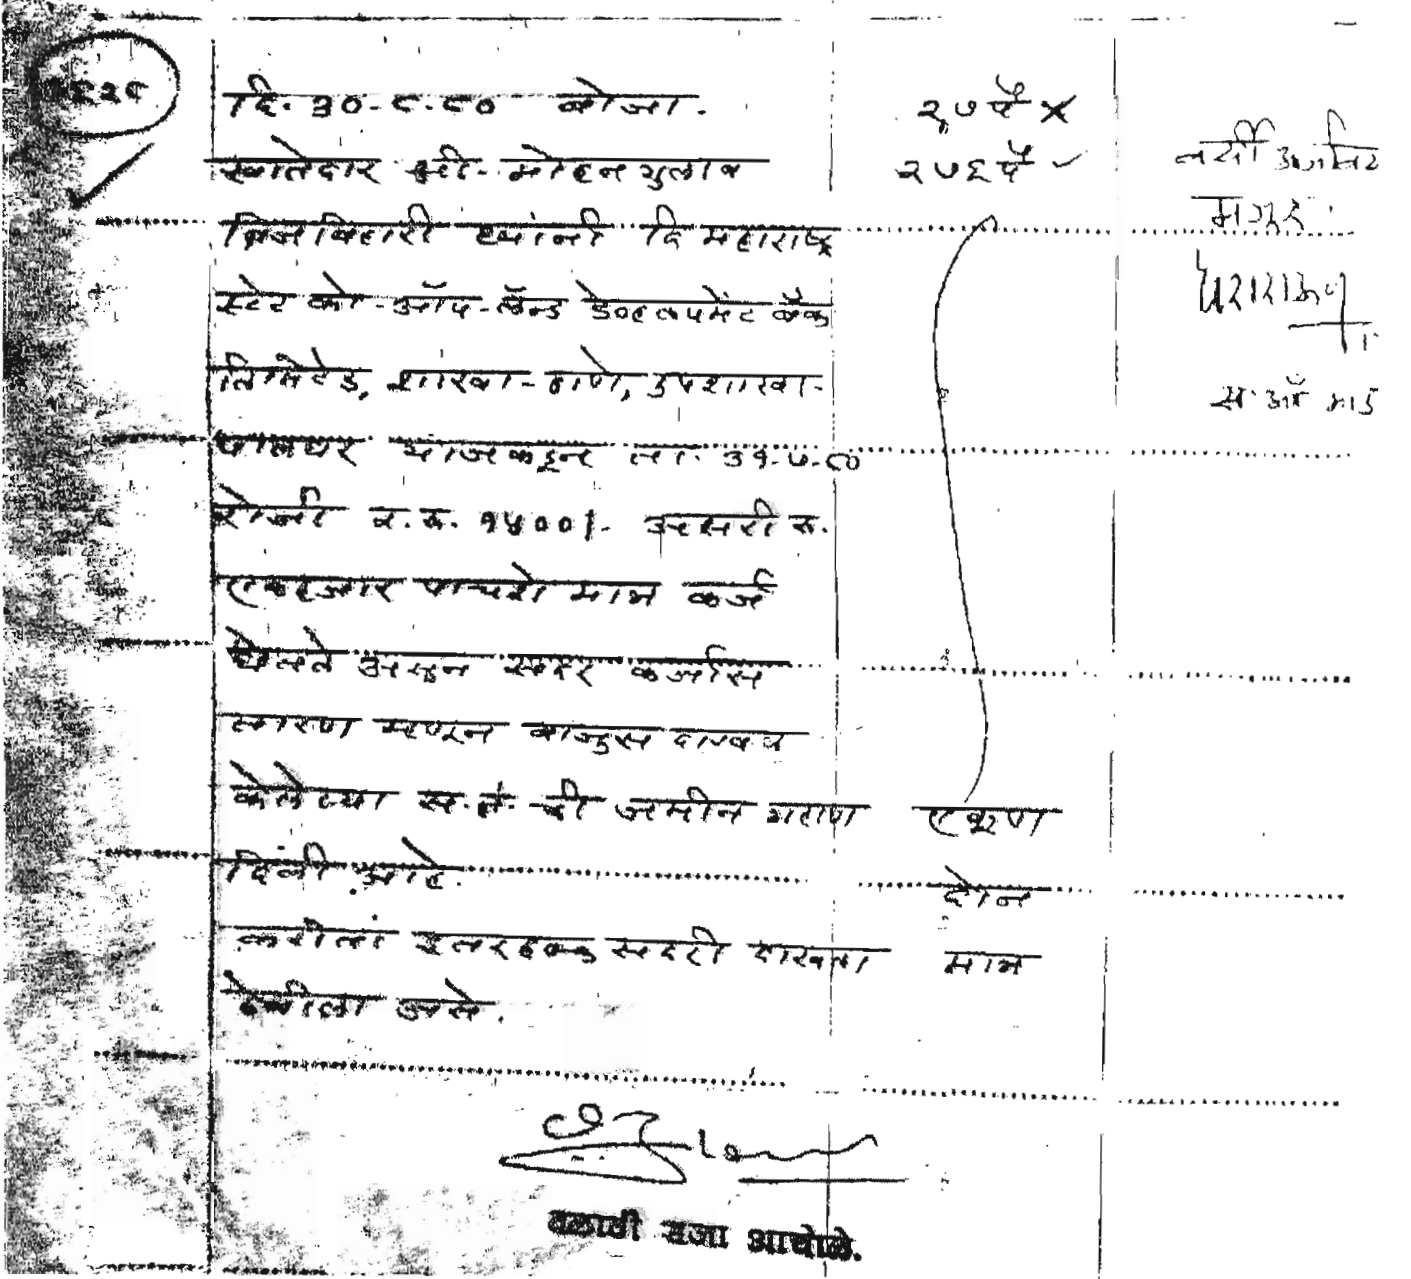 दि. ३०-८-८० बोजा.
खातेदार श्री. मोहन गुलाब
यांनी दि महाराष्ट्र
स्टेट को-ऑप-लॅन्ड डेव्हलपमेंट बँक
लिमिटेड, शाखा-ठाणे, उपशाखा-
पालघर यांजकडून ता. ३१-७-८०
रोजी र.रु. १५००/- अक्षरी रु.
एकहजार पाचशे मात्र कर्ज
घेतले असून सदर कर्जास
तारण म्हणून बाजुस दाखल
केलेल्या स.नं. ची जमीन गहाण
दिली आहे.
करीतां इतर हक्क सदरी दाखला
ठेवीला असे.
२७ पै ×
२७६ पै
एकूण
दोन
मात्र
मंजूर
तलाठी सजा आचोळे.